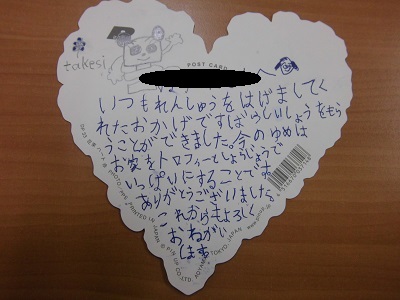 takesi
POST CARD
いつもれんしゅうをはげましてく
れたおかげですばらしいしょうをもら
うことができました。今のゆめは
お家をトロフィーとしょうじょうで
いっぱいにすることです
ありがとうございました。
これからもよろしく
おねがい
します。